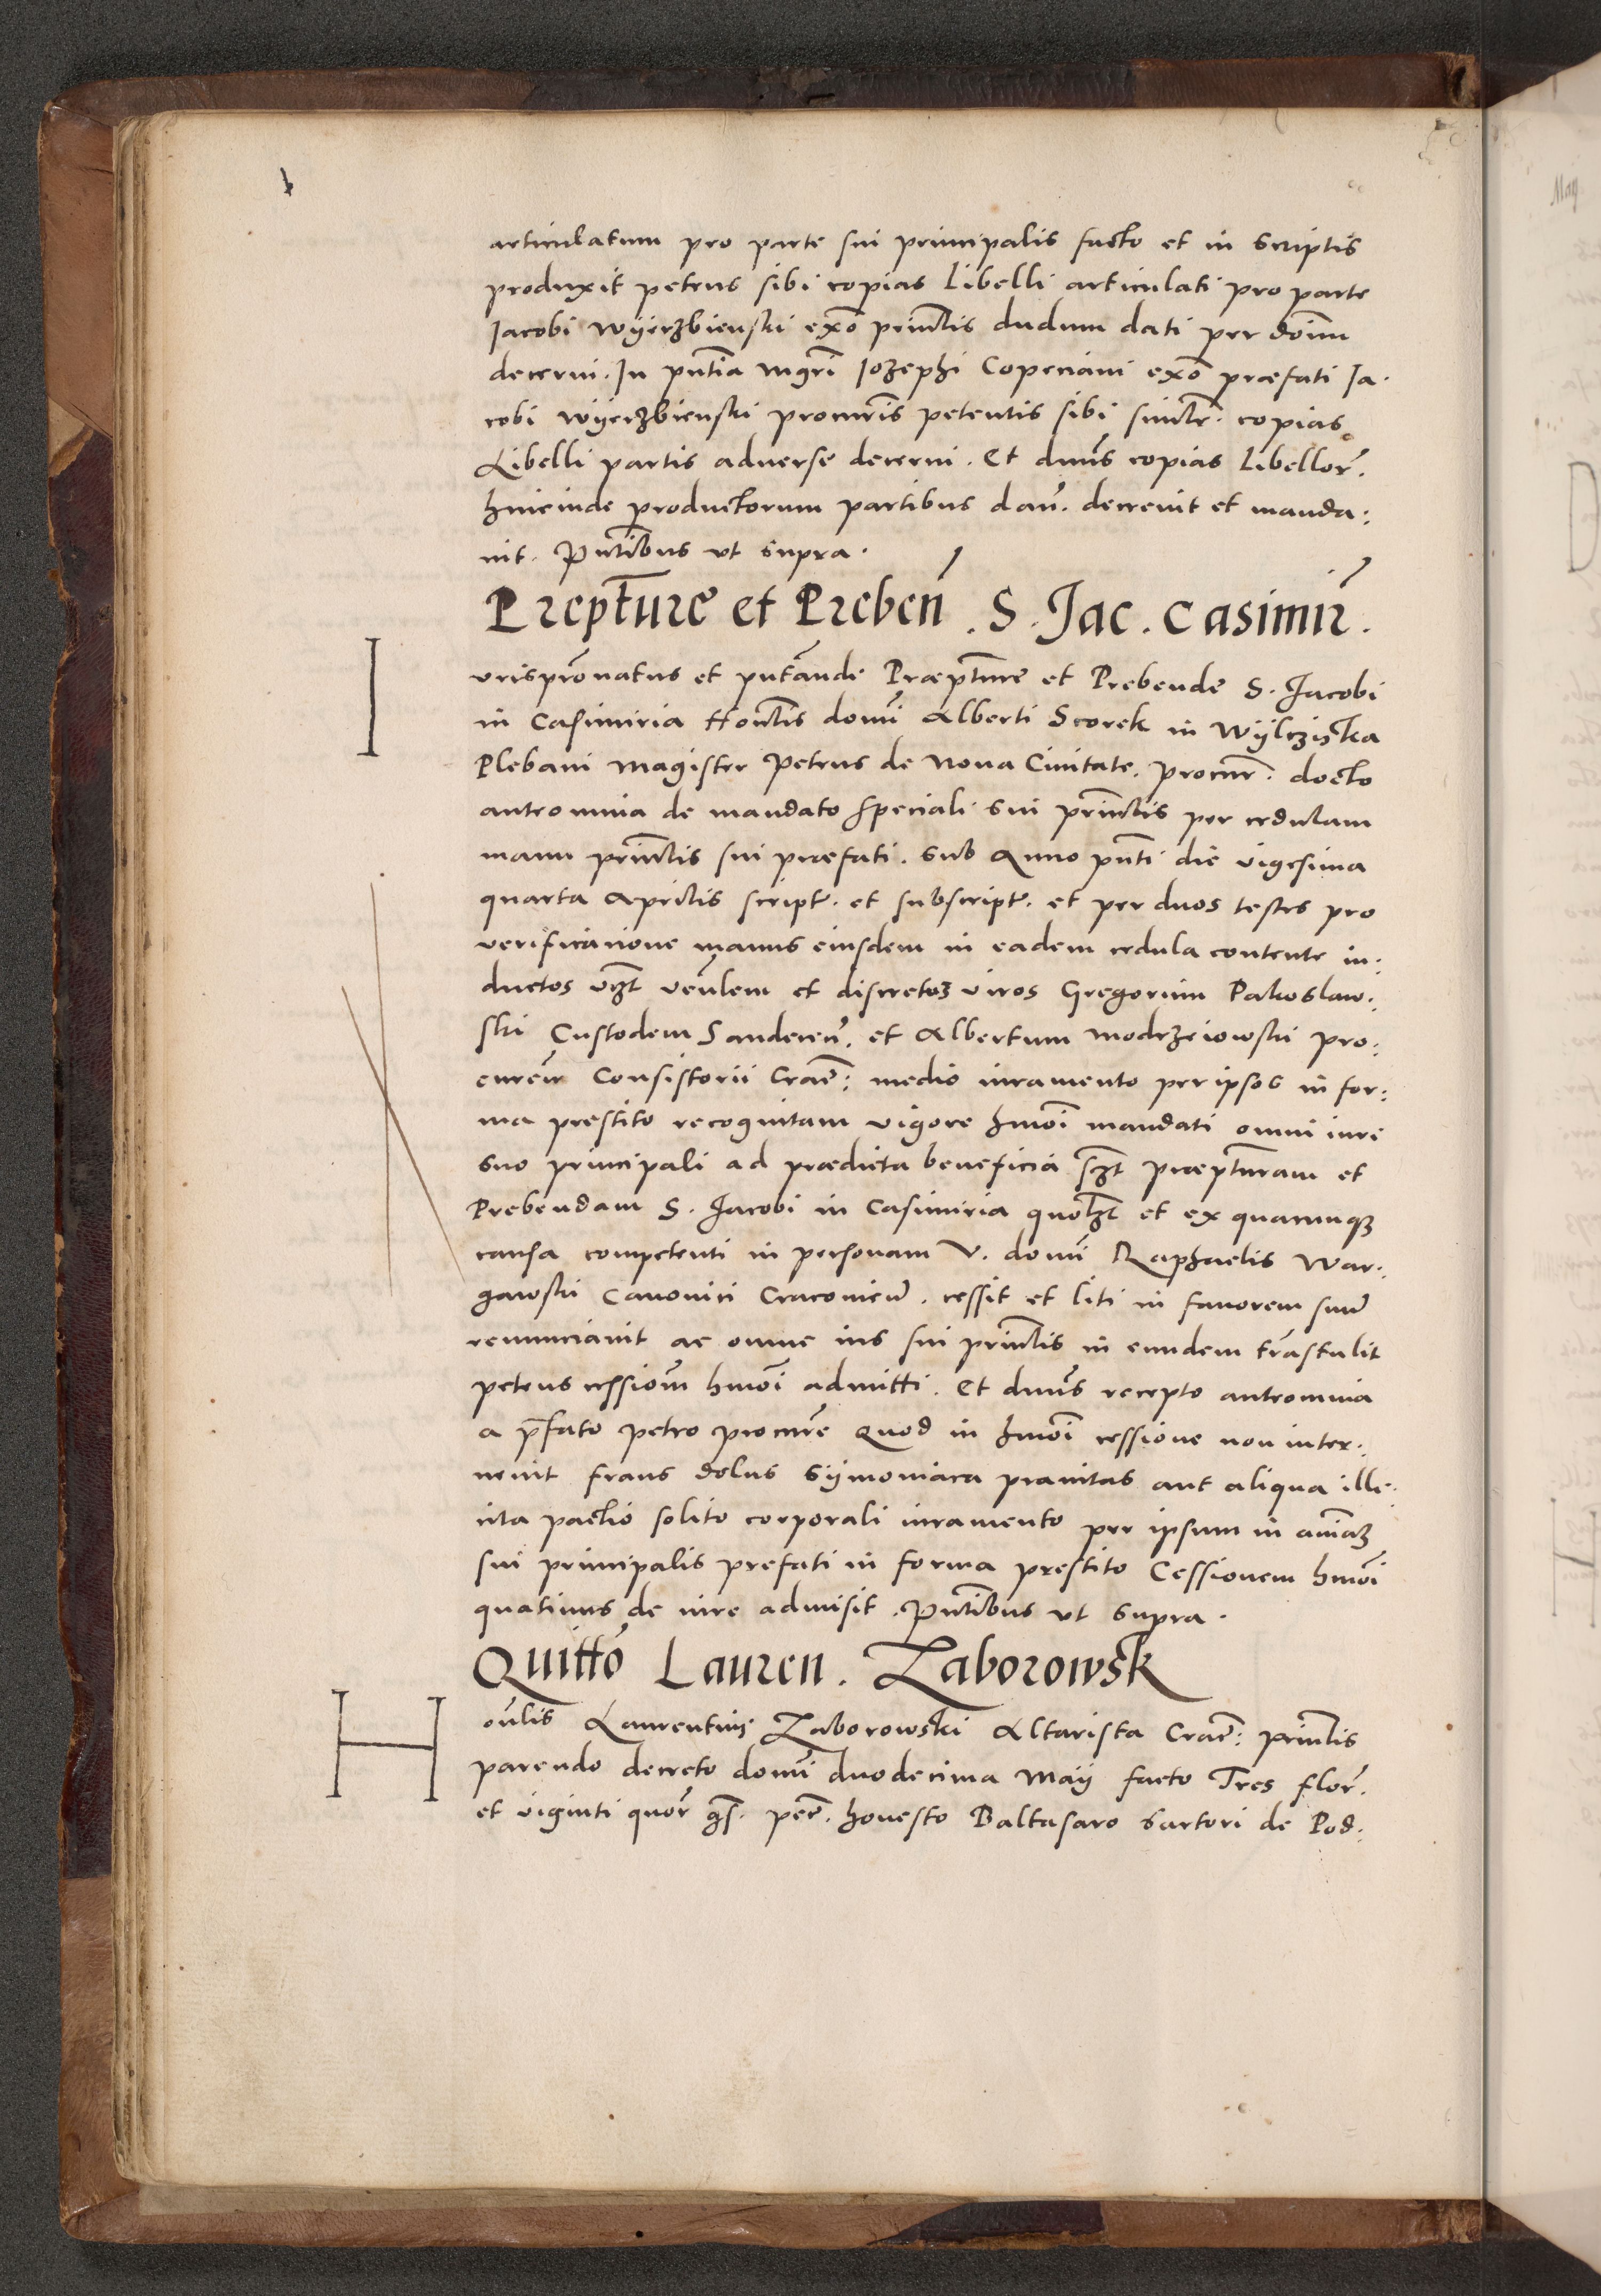 articulatum pro parte sui principalis facto et in scriptis
produxit petens sibi copias Libelli articulati pro parte
Jacobi Wyerzbienski exõ prinĉlis dudum dati per doĩm
decerni. In pñtia mgr̃i Jozephi Copeciani exõ præfati Ja.
cobi Wyerzbienski procuris petentis sibi simĩlr. copias
Libelli partis adverse decerni. Et dmñs copias Libellor̃.
hincinde productorum partibus dañ. decrevit et manda:
vit. Pñtibus vt supra.
Præpt̃ure et Prebeñ. S. Jac. Casimir̃.
I
vrisprõnatus et pntãnde Præpt̃ure et Prebende S. Jacobi
in Casimiria Honĩlis domĩ Alberti Scorek in Wylcziska
Plebani Magister Petrus de Nova Civitate. procur̃. docto
antromnia de mandato speciali sui prinĩlis per cedulam
manu prinĩlis sui præfati. sub Anno pñti die vigesima
quarta Aprilis script̃. et subscript̃. et per duos testes pro
verificacione manus eiusdem in eadem cedula contente in:
ductos vzt̃ veñlem et discretos viros Gregorium Pakoslaw.
ski Custodem Sandecen̄. et Albertum Modrzeiowski pro:
curem̃ Consistorii Cracẽ: medio iuramento per ipsos in for:
ma prestito recognitam vigore hmõi mandati omni iuri
suo principali ad prædicta beneficia szt̃ præpt̃uram et
Prebendam S. Jacobi in Casimiria quolzt̃ et ex quacunqz
causa competenti in personam V. domĩ Raphaelis War:
gawski Canonici Cracovieñ. cessit et liti in favorem suũ
renunciavit ac omne ius sui prinĩlis in eundem trãstulit
petens cessionẽm hmõi admitti. Et dmñs recepto antromnia
a pr̃fato petro procurẽ quod in hmõi cessione non inter:
venit fraus dolus Symoniaca pravitas aut aliqua illi:
cita pactio solito corporali iuramento per ipsum in aĩmaz
sui principalis prefati in forma prestito Cessionem hmõi
quatinus de iure admisit. Pñtibus vt supra.
Quittõ Lauren. Zaborowsk
H
oñlis Laurentius Zaborowski Altarista Cracẽ: prinĩlis
parendo decreto domĩ duodecima Maÿ facto Tres flor̃.
et viginti quor̃ gs̃. per̃. honesto Baltasaro Sartori de Pod: